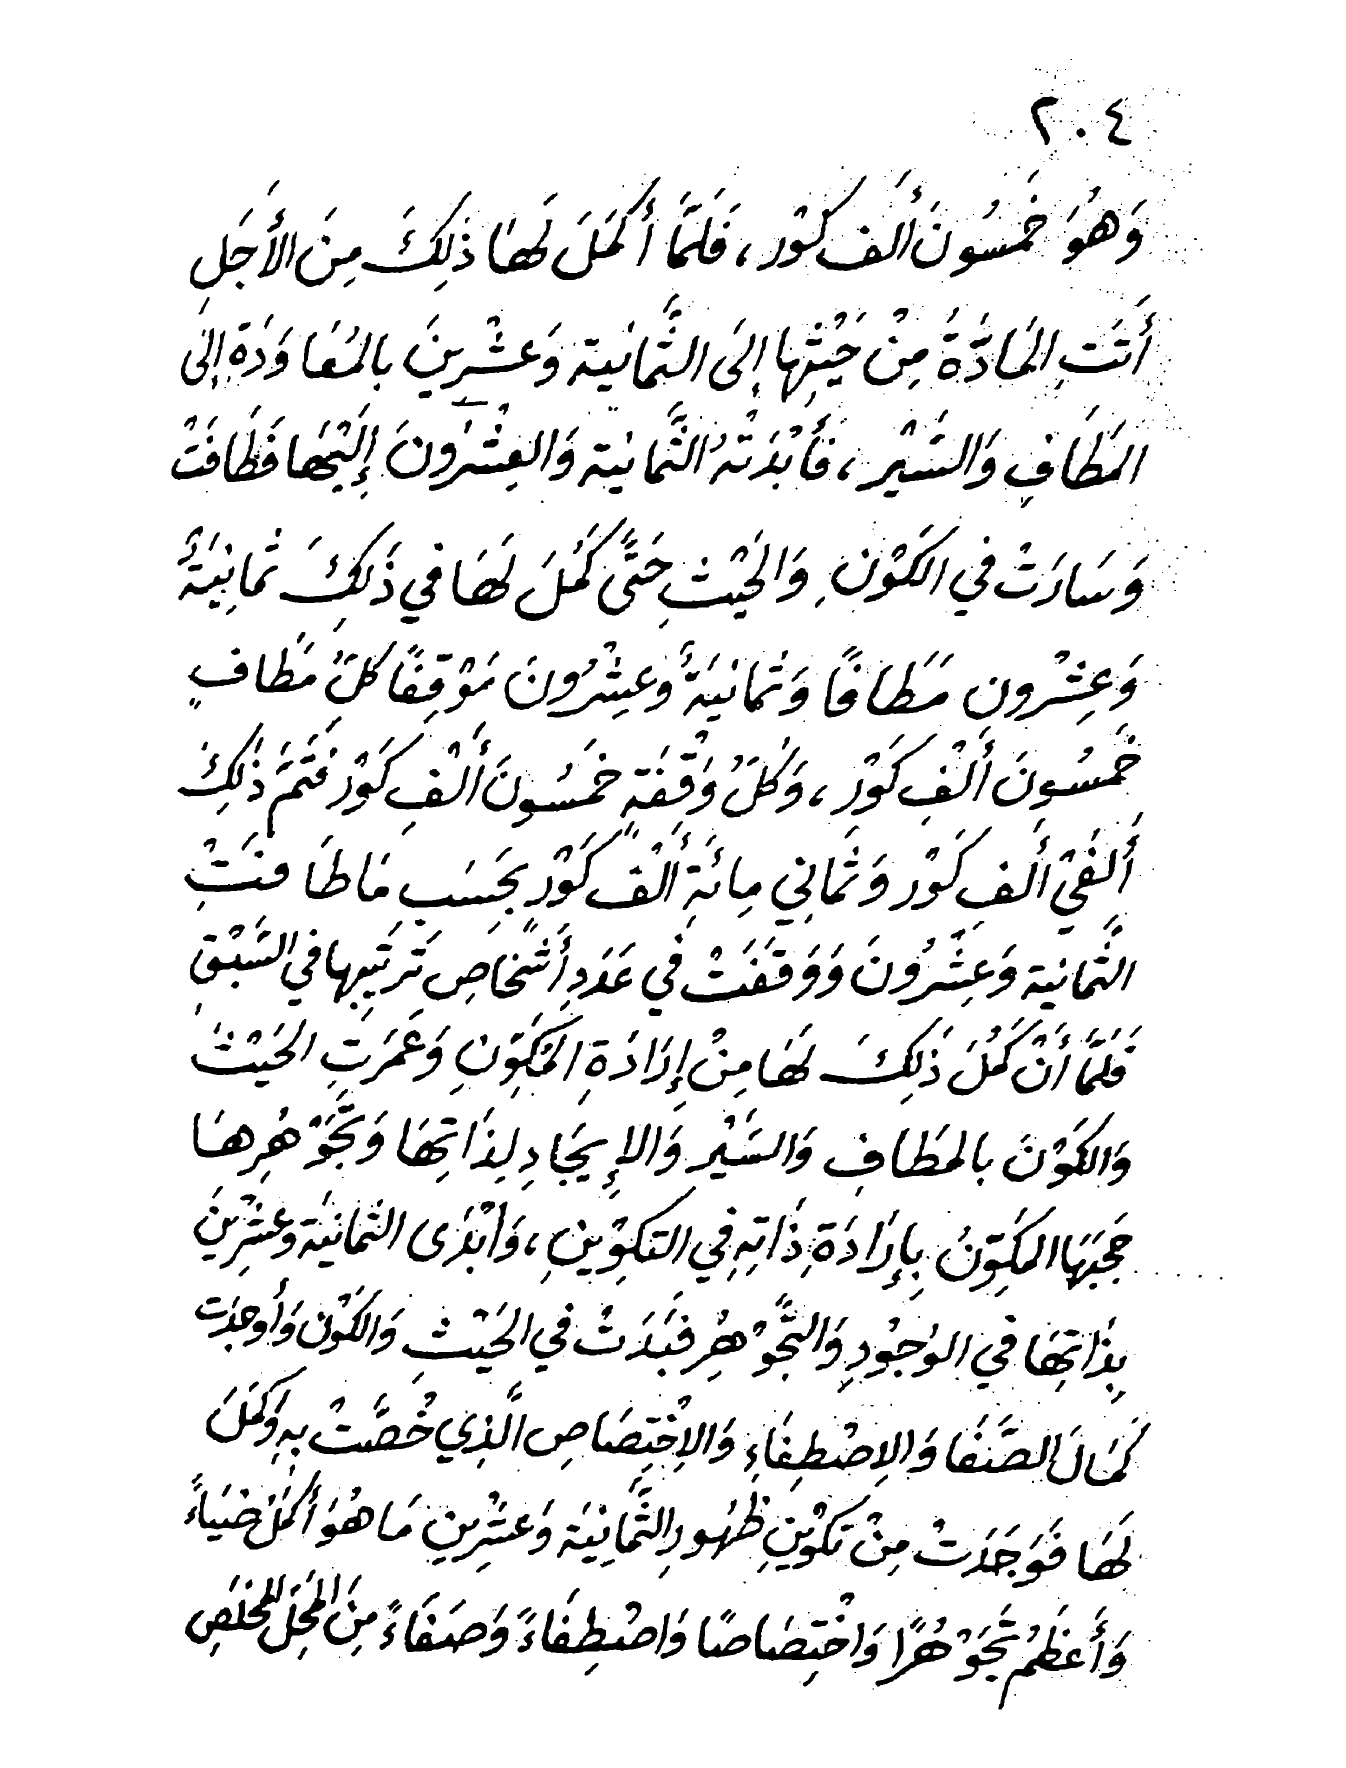 ٢٠٤
وَهُوَ خَمسُونَ أَلف كَوْر، فَلَمَّا أَكمَلَ لَهَا ذَلِكَ مِنَ الأَجَلِ
أَتَتِ المَادَّةُ مِنْ حَيْثِهَا إِلَى الثَّمَانِية وَعَشْرِينَ بالمُعَاوَدَةِ إِلَى
المَطَافِ وَالسَّيْرِ، فَأَبْدَتْهُ الثَّمانِية وَالعِشْرُونَ إِلَيْهَا فَطَافَتْ
وَسَارَتْ في الكَوْنِ وَالحَيْثِ حَتَّى كَمُلَ لَهَا في ذَلِكَ ثمانِيَةٌ
وَعِشْرون مَطَافًا وَثمانيَةٌ وعِشْرُونَ مَوْقِفًا كلُّ مَطافٍ
خَمسُونَ أَلْفِ كَوْر، وَكلُّ وَقْفَةٍ خمَسُونَ أَلْفِ كَوْر فَتَمَّ ذَلِكَ
أَلفَيْ أَلفِ كَوْر وَثَمانِي مِائَةِ أَلْفِ كَوْر بحَسَبِ مَا طَافَتْ
الثَّمانِية وَعِشْرُونَ وَوَقَفَتْ في عَدَدِ أَشْخَاصِ تَرتيبها في السَّبْقِ
فَلَمَّا أَنْ كَمُلَ ذَلِكَ لَهَا مِنْ إِرَادَةِ المُكَوِّنِ وَعَمَرَتِ الحَيْثَ
وَالكَوْنَ بالمَطَافِ وَالسَّيْرِ وَالإِيجَادِ لِذَاتِهَا وَتجَوْهُرِهَا
حَجَبَهَا المكَوِّنُ بِإِرَادَةِ ذَاتِهِ في التكوِيْنِ، وَأبْدَى الثمانيَة وعِشْرِينَ
بِذَاتِهَا في الوُجُودِ وَالتَّجَوْهُرِ فَبَدَتْ في الحَيْثِ وَالكَوْنِ وَأَوجدَت
كمَالَ الصَّفَا وَالإِصْطِفَاءِ وَالإِخْتِصَاصِ الَّذِي خُصَّتْ بهِ وَكَمَلَ
لَهَا فَوَجَدَتْ مِنْ تكوْينِ ظهُورِ الثَّمانِيَة وَعَشْرِينِ مَا هُوَ أَكمَلُ ضيَاءً
وَأَعظَمُ تجَوْهُرًا وَاخْتِصَاصًا وَاصْطِفَاءً وَصَفَاءً مِنَ المَحِلِّ المخلَصِ